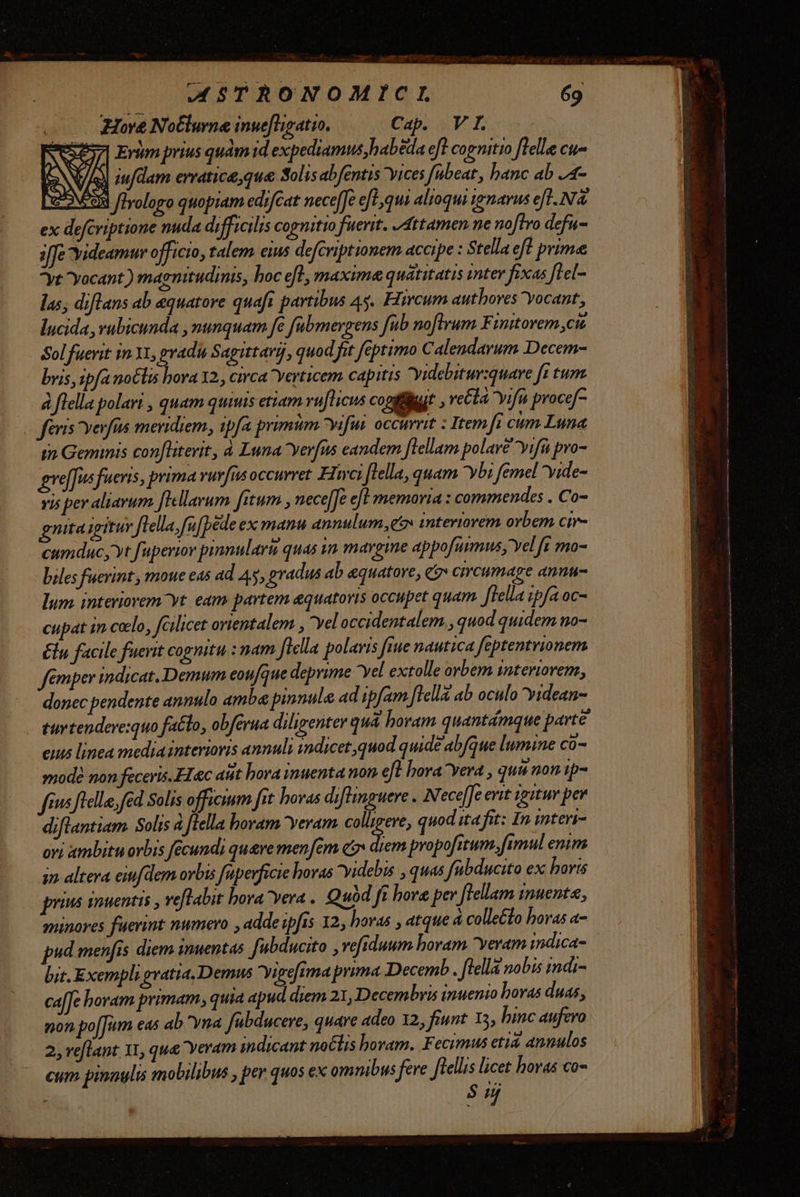 ASTRONOMICI. 69
Horæ Nocturnæ inuestigatio. Cap. VI.
Erùm prius quàm id expediamus, habēda est cognitio stellæ cu-
iusdam erraticæ, quæ Solis absentis vices subeat, hanc ab A-
strologo quopiam edifcat necesse est, qui alioqui ignarus est. Nā
ex descriptione nuda difficilis cognitio fuerit. Attamen ne nostro defu-
isse videamur officio, talem eius descriptionem accipe : Stella est primæ
vt vocant) magnitudinis, hoc est, maximæ quātitatis inter fixas stel-
las, distans ab æquatore quasi partibus 45. Hircum authores vocant,
lucida, rubicunda , nunquam se submergens sub nostrum Finitorem, cū
Sol fuerit in 11, gradu Sagittarij, quod fit septimo Calendarum Decem-
bris, ipsa noctis hora 12, circa verticem capitis videbitur: quare si tum
à stella polari , quam quiuis etiam rusticus , rectà visu proces-
seris versus meridiem, ipsa primùm visui occurrit : Item si cum Luna
in Geminis constiterit, à Luna versus eandem stellam polarē visu pro-
gressus fueris, prima rursus occurret Hirci stella, quam vbi semel vide-
ris per aliarum stellarum situm , necesse est memoria : commendes . Co-
gnita igitur stella, suspēde ex manu annulum, & interiorem orbem cir-
cumduc, vt superior pinnularū quas in margine apposuimus, vel si mo-
biles fuerint, moue eas ad 45, gradus ab æquatore, & circumage annu-
lum interiorem vt eam partem æquatoris occupet quam stella ipsa oc-
cupat in cœlo, scilicet orientalem , vel occidentalem , quod quidem no-
ctu facile fuerit cognitu : nam stella polaris siue nautica septentrionem
semper indicat. Demum eousque deprime vel extolle orbem interiorem,
donec pendente annulo ambæ pinnulæ ad ipsam stellā ab oculo videan-
tur tendere: quo facto, obserua diligenter quā horam quantámque partē
eius linea media interioris annuli indicet, quod quidē absque lumine cō-
modè non feceris. Hæc aūt hora inuenta non est hora vera , quū non ip-
sius stellæ, sed Solis officium sit horas distinguere . Necesse erit igitur per
distantiam Solis à stella horam veram colligere, quod ita fit: In interi-
ori ambitu orbis secundi quære mensem & diem propositum, simul enim
in altera eiusdem orbis superficie horas videbis , quas subducito ex horis
prius inuentis , restabit hora vera . Quòd si horæ per stellam inuentæ,
minores fuerint numero , adde ipsis 12, horas , atque à collecto horas a-
pud mensis diem inuentas subducito , residuum horam veram indica-
bit. Exempli gratia. Demus vigesima prima Decemb . stellā nobis indi-
casse horam primam, quia apud diem 21, Decembris inuenio horas duas,
non possum eas ab vna subducere, quare adeo 12, fiunt 13, hinc aufero
2, restant 11, quæ veram indicant noctis horam. Fecimus etiā annulos
cum pinnulis mobilibus , per quos ex omnibus fere stellis licet horas co-
S iij